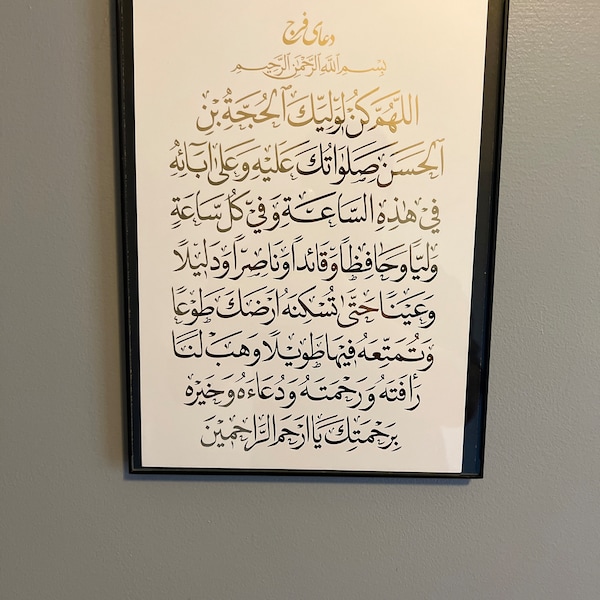 دعای فرج
بِسْمِ اللَّهِ الرَّحْمَٰنِ الرَّحِيمِ
اللَّهُمَّ كُنْ لِوَلِيِّكَ الْحُجَّةِ بْنِ
الْحَسَنِ صَلَوَاتُكَ عَلَيْهِ وَعَلَىٰ آبَائِهِ
فِي هَٰذِهِ السَّاعَةِ وَفِي كُلِّ سَاعَةٍ
وَلِيًّا وَحَافِظًا وَقَائِدًا وَنَاصِرًا وَدَلِيلًا
وَعَيْنًا حَتَّىٰ تُسْكِنَهُ أَرْضَكَ طَوْعًا
وَتُمَتِّعَهُ فِيهَا طَوِيلًا وَهَبْ لَنَا
رَأْفَتَهُ وَرَحْمَتَهُ وَدُعَاءَهُ وَخَيْرَهُ
بِرَحْمَتِكَ يَا أَرْحَمَ الرَّاحِمِينَ